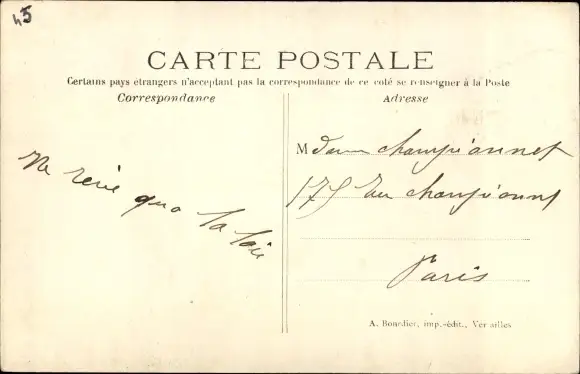 45
CARTE POSTALE
Certains pays étrangers n'acceptant pas la correspondance de ce coté se renseigner à la Poste
Correspondance
Adresse
Mdame championnet
175 Rue championnet
Paris
A. Bourdier, imp.-édit., Versailles